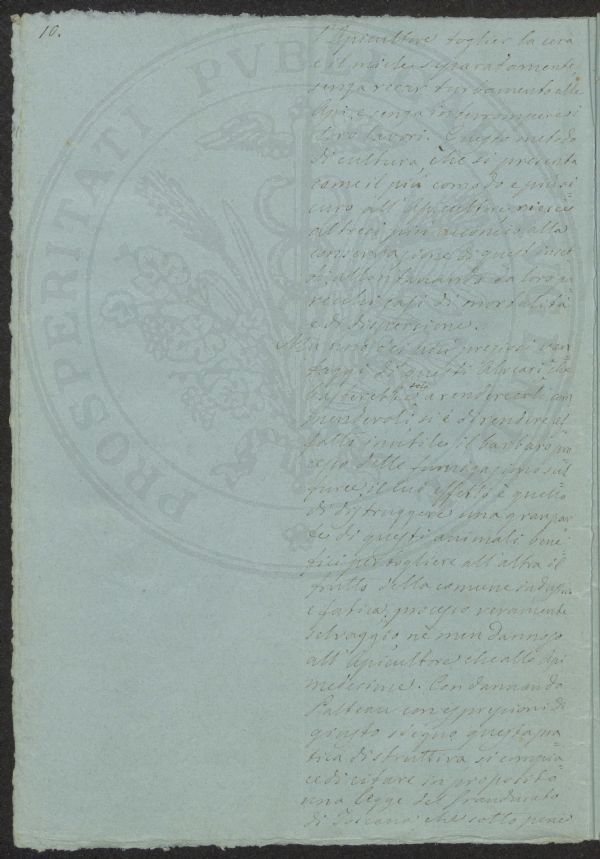 10.
l'Apicultore toglier la cera
e il miele separatamente
senza recar turbamento alle
Api, e senza interrompere i
loro lavori. Questo metodo
di cultura che si presenta
come il più comodo e più si
curo all'Apicultore riesce
altresì più acconcio alla
conservazione di questi inset
ti allontanando da loro
casi di mortalità
e di dispersione.
Ma uno dei più preziosi van=
taggi di questi Alveari che
basterebbe solo a renderceli com
mendevoli si è di rendere af
fatto inutile il barbaro pro
cesso delle fumigazioni sul
furee il cui effetto è quello
di distruggere una gran par
te di questi animali bene=
fici per togliere all'altra il
frutto della comune industria
e fatica, processo veramente
selvaggio nè men dannoso
all'Apicultore che alle Api
medesime. Condannando
Palteau con espressioni di
giusto sdegno questa pra
tica distruttiva si compia
ce di citare in proposito
una legge del Granducato
di Toscana che sotto pene
PROSPERITATI PUBLICAE